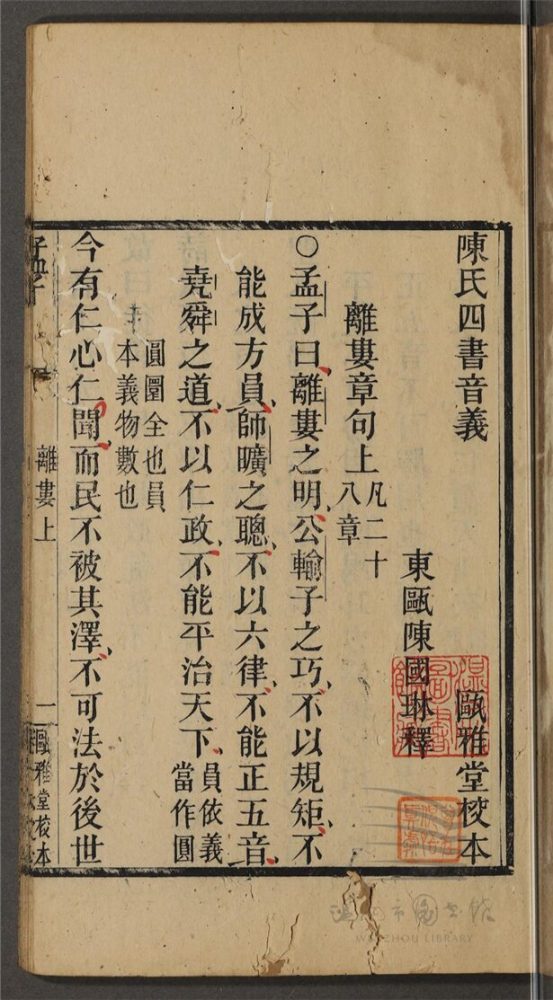 陳氏四書音義　甌雅堂校本
東甌陳國琳釋
離婁章句上凡二十八章
○孟子曰離婁之明公輸子之巧不以規矩不
能成方員師曠之聰不以六律不能正五音
堯舜之道不以仁政不能平治天下員依義當作圓
圓圜全也員
本義物數也
今有仁心仁聞而民不被其澤不可法於後世
孟子
離婁上
一
甌雅堂校本
溫州市圖書館
WENZHOU LIBRARY